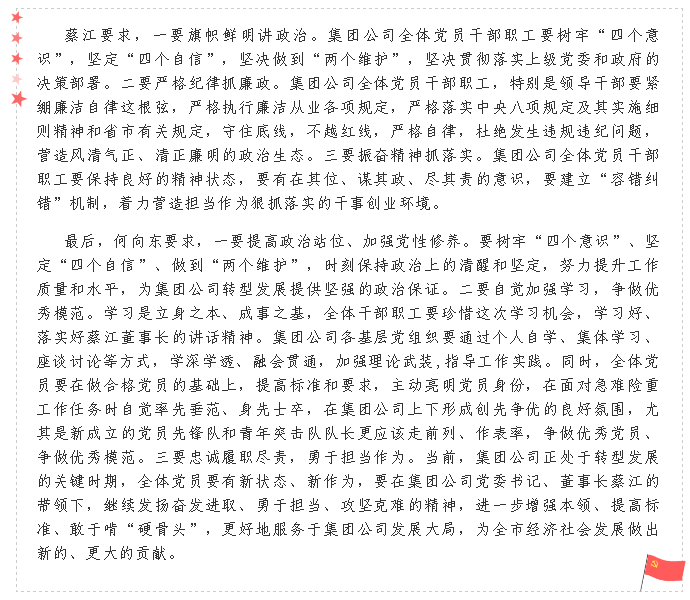 蔡江要求，一要旗帜鲜明讲政治。集团公司全体党员干部职工要树牢“四个意
识”，坚定“四个自信”，坚决做到“两个维护”，坚决贯彻落实上级党委和政府的
决策部署。二要严格纪律抓廉政。集团公司全体党员干部职工，特别是领导干部要紧
绷廉洁自律这根弦，严格执行廉洁从业各项规定，严格落实中央八项规定及其实施细
则精神和省市有关规定，守住底线，不越红线，严格自律，杜绝发生违规违纪问题，
营造风清气正、清正廉明的政治生态。三要振奋精神抓落实。集团公司全体党员干部
职工要保持良好的精神状态，要有在其位、谋其政、尽其责的意识，要建立“容错纠
错”机制，着力营造担当作为狠抓落实的干事创业环境。
最后，何向东要求，一要提高政治站位、加强党性修养。要树牢“四个意识”、坚
定“四个自信”、做到“两个维护”，时刻保持政治上的清醒和坚定，努力提升工作
质量和水平，为集团公司转型发展提供坚强的政治保证。二要自觉加强学习，争做优
秀模范。学习是立身之本、成事之基，全体干部职工要珍惜这次学习机会，学习好、
落实好蔡江董事长的讲话精神。集团公司各基层党组织要通过个人自学、集体学习、
座谈讨论等方式，学深学透、融会贯通，加强理论武装,指导工作实践。同时，全体党
员要在做合格党员的基础上，提高标准和要求，主动亮明党员身份，在面对急难险重
工作任务时自觉率先垂范、身先士卒，在集团公司上下形成创先争优的良好氛围，尤
其是新成立的党员先锋队和青年突击队队长更应该走前列、作表率，争做优秀党员、
争做优秀模范。三要忠诚履职尽责，勇于担当作为。当前，集团公司正处于转型发展
的关键时期，全体党员要有新状态、新作为，要在集团公司党委书记、董事长蔡江的
带领下，继续发扬奋发进取、勇于担当、攻坚克难的精神，进一步增强本领、提高标
准、敢于啃“硬骨头”，更好地服务于集团公司发展大局，为全市经济社会发展做出
新的、更大的贡献。